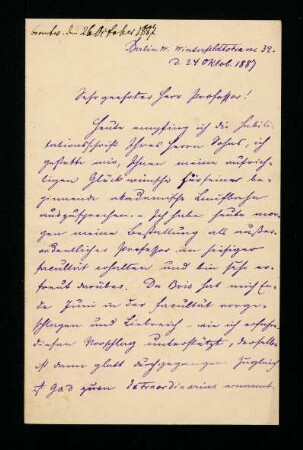 beantw. den 26. October 1887
Berlin W. Winterfeldtstrasse 32.
d. 24 Oktob. 1887
Sehr geehrter Herr Professor!
Heute empfing ich die Habili-
tationsschrift Ihres Herrn Sohns, ich
gestatte mir, Ihnen meine aufrich-
tigen Glückwünsche für seine be-
ginnende akademische Laufbahn
auszusprechen. Ich habe heute mor-
gen meine Bestallung als außer-
ordentlicher Professor an hiesiger
Facultät erhalten und bin sehr er-
freut darüber. Du Bois hat mich En-
de Juni in der Facultät vorge-
schlagen und Liebreich – wie ich erfahre
diesen Vorschlag unterstützt, derselbe
ist dann glatt durchgegangen. Zugleich
ist Gad zum Extraordinarius ernannt.